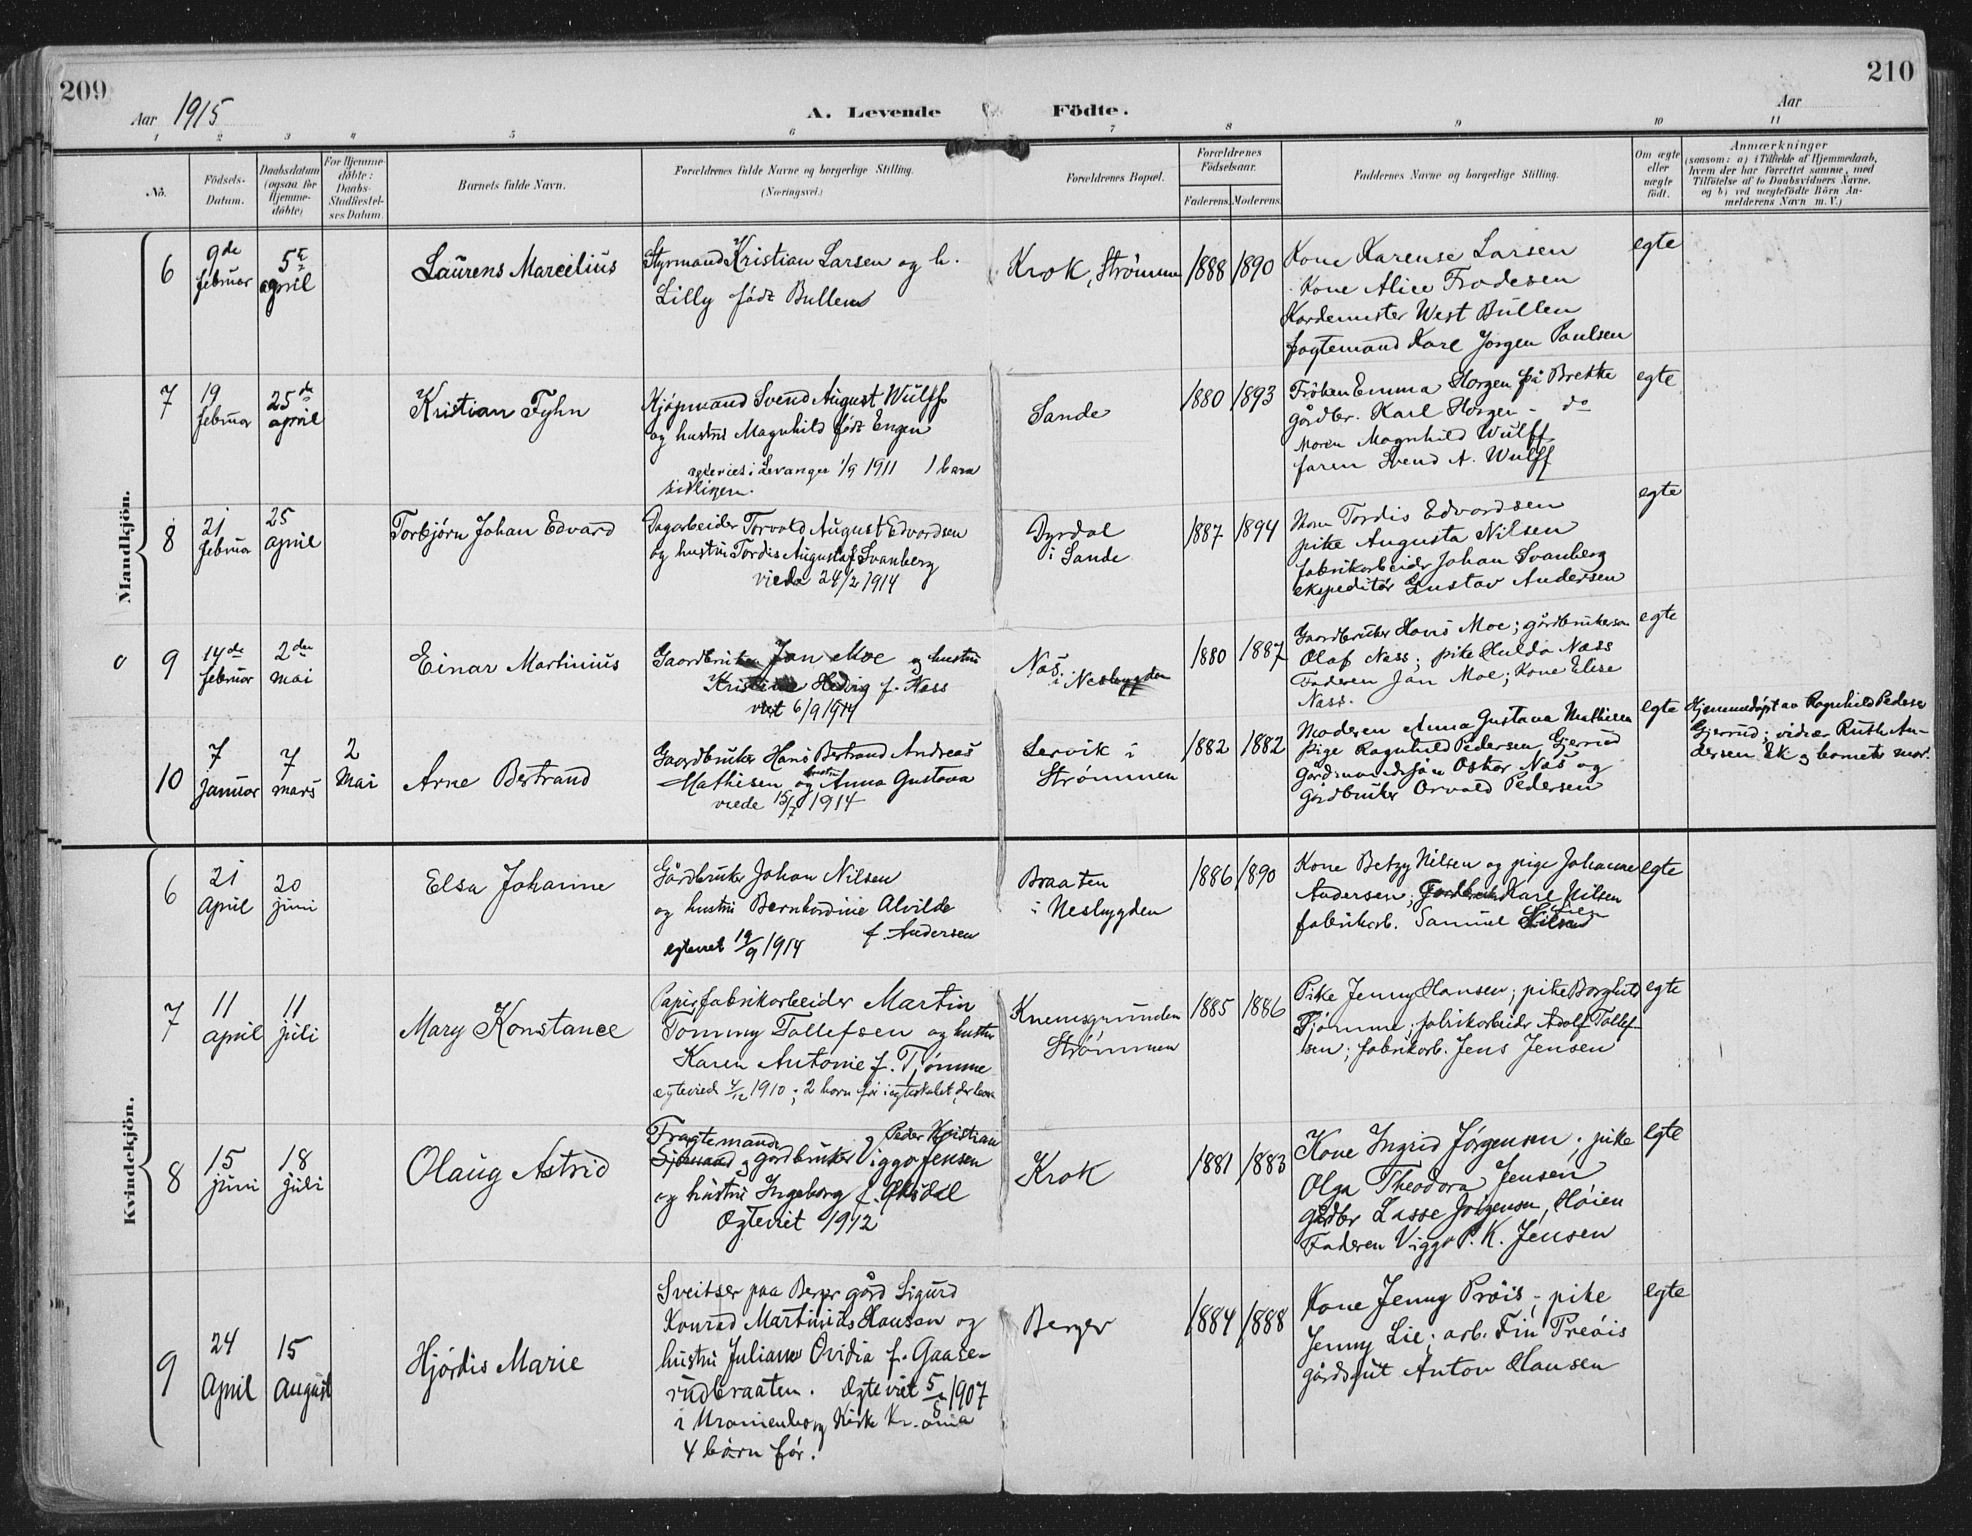 209
210
Aar 1915
A. Levende Födte.
Aar
1 2 3 4 5 6 7 8 9 10 11
No.
Födsels-
Datum.
Daabsdatum
(ogsaa för
Hjemme-
döbte)
For Hjemme-
döbte:
Daabs-
Stadfæstel-
ses Datum.
Barnets fulde Navn.
Forældrenes fulde Navne og borgerlige Stilling.
(Næringsvei.)
Forældrenes Bopæl.
Forældrenes
Födselsaar.
Faderens. Moderens.
Faddernes Navne og borgerlige Stilling.
Om ægte
eller
uægte
födt.
Anmærkninger
(saasom: a) i Tilfælde af Hjemmedaab,
hvem der har forrettet samme, med
Tilföielse af to Daabsvidners Navne,
og b) ved uægtefödte Börn An-
melderens Navn m. V.)
Mandkjön.
6
9de
februar
5te
april
Laurens Marcelius
Styrmand Kristian Larsen og h.
Lilly født Bullen
Krok, Strømmen
1888 1890
Kone Karense Larsen
Kone Alice Frodesen
West Bullen
fragtemand Karl Jørgen Paulsen
egte
7
19
februar
25de
april
Kristian Fyhn
Kjøpmand Svend August Wulff
og hustru Magnhild født Engen
i Levanger 1/9 1911 1 barn
tidligere.
Sande
1880 1893
Frøken Emma Horgen på Brekke
gårdbr. Karl Horgen - do
Moren Magnhild Wulff
faren Svend A. Wulff
egte
8
21
februar
25
april
Torbjørn Johan Edvard
Dagarbeider Torvald August Edvardsen
og hustru Tordis Augusta f. Svanberg
viede 24/2 1914
Dyrdal
i Sande
1887 1894
Moren Tordis Edvardsen
pike Augusta Nilsen
fabrikarbeider Johan Svanberg
ekspeditør Gustav Andersen
egte
9
14de
februar
2den
mai
Einar Martinius
Gaardbruker Jan Moe og hustru
Kristine Hedvig f. Næss
viet 6/9 1914
Nes i Nesbygden
1880 1887
Gaardbruker Hans Moe; gårdbrukersøn
Olaf Næss; pike Hulda Næss
Faderen Jan Moe; Kone Elise
Næss.
egte
10
7
januar
7
mars
2
Mai
Arne Bertrand
Gaardbruker Hans Bertrand Andreas
Mathisen og hustru Anna Gustava
viede 15/7 1914
Lervik i
Strømmen
1882 1882
Moderen Anna Gustava Mathisen
pige Ragnhild Pedersen Gjerrud
gårdmandssøn Oskar Nås og
gårdbruker Orvald Pedersen
egte
Hjemmedøpt av Ragnhild Pedersen
Gjerrud; vidner Ruth An-
dersen Ek og barnets mor.
Kvindekjön.
6
21
April
20
juni
Elsa Johanne
Gårdbruker Johan Nilsen
og hustru Bernhardine Alvilde
f. Andersen
egteviet 19/9 1914
Braaten
i Nesbygden
1886 1890
Kone Betzy Nilsen og pige Johanne
Andersen; Karl Nilsen
fabrikarb. Samuel
egte
7
11
april
11
juli
Mary Konstance
Papirfabrikarbeider Martin
Tommy Tollefsen og hustru
Karen Antonie f. Tjømme
egteviet 4/12 1910; 2 barn før i egteskabet,
Knemsgrunden
Strømmen
1885 1886
Pike Jenny Hansen; pike Borghild
Tjømme; fabrikarbeider Adolf Tollef-
sen; fabrikarb. Jens Jensen
egte
8
15
juni
18
juli
Olaug Astrid
Fragtemand Peder Kristian
Sjømand og gårdbruker Viggo Jensen
og hustru Ingeborg f. Øksdal
Ægteviet 1912
Krok
1881 1883
Kone Ingrid Jørgensen, pike
Olga Theodora Jensen
gårdbr Lasse Jørgensen, Høien
Faderen Viggo P. K. Jensen
egte
9
24
April
15
August
Hjórdis Marie
Sveitser paa Berger gård Sigurd
Konrad Martinius Hansen og
hustru Juliane Ovidia f. Gaase-
rudbraaten. Ægteviet 5/5 1907
i Uranienborg Kirke Kr.ania
4 barn før.
Berger
1884 1888
Kone Jenny Prøis; pike
Jenny Lie; arb. Fin Preøis
gårdsgut Anton Hansen
egte